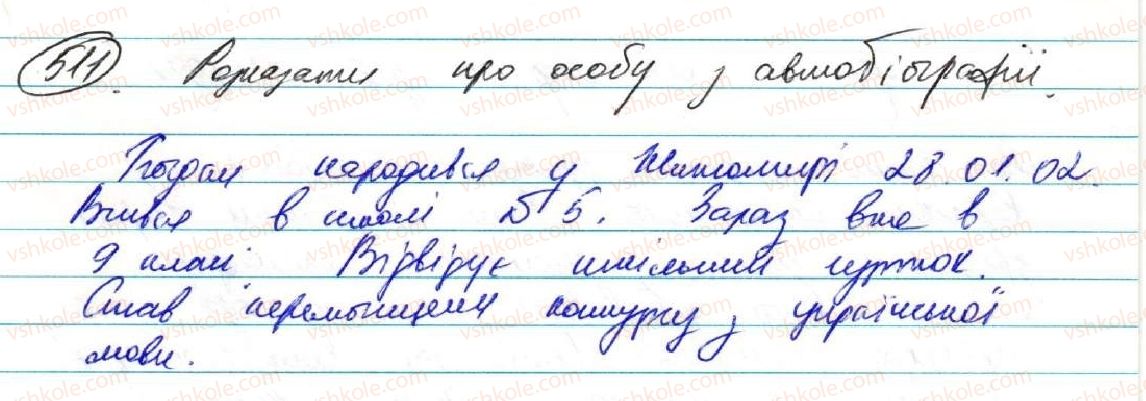 511. Розказати про особу з автобіографії.
Богдан народився у Житомирі 28.01.02.
Вчився в школі №5. Зараз вже в
9 класі. Відвідує шкільний гурток.
Став переможцем конкурсу з української
мови.